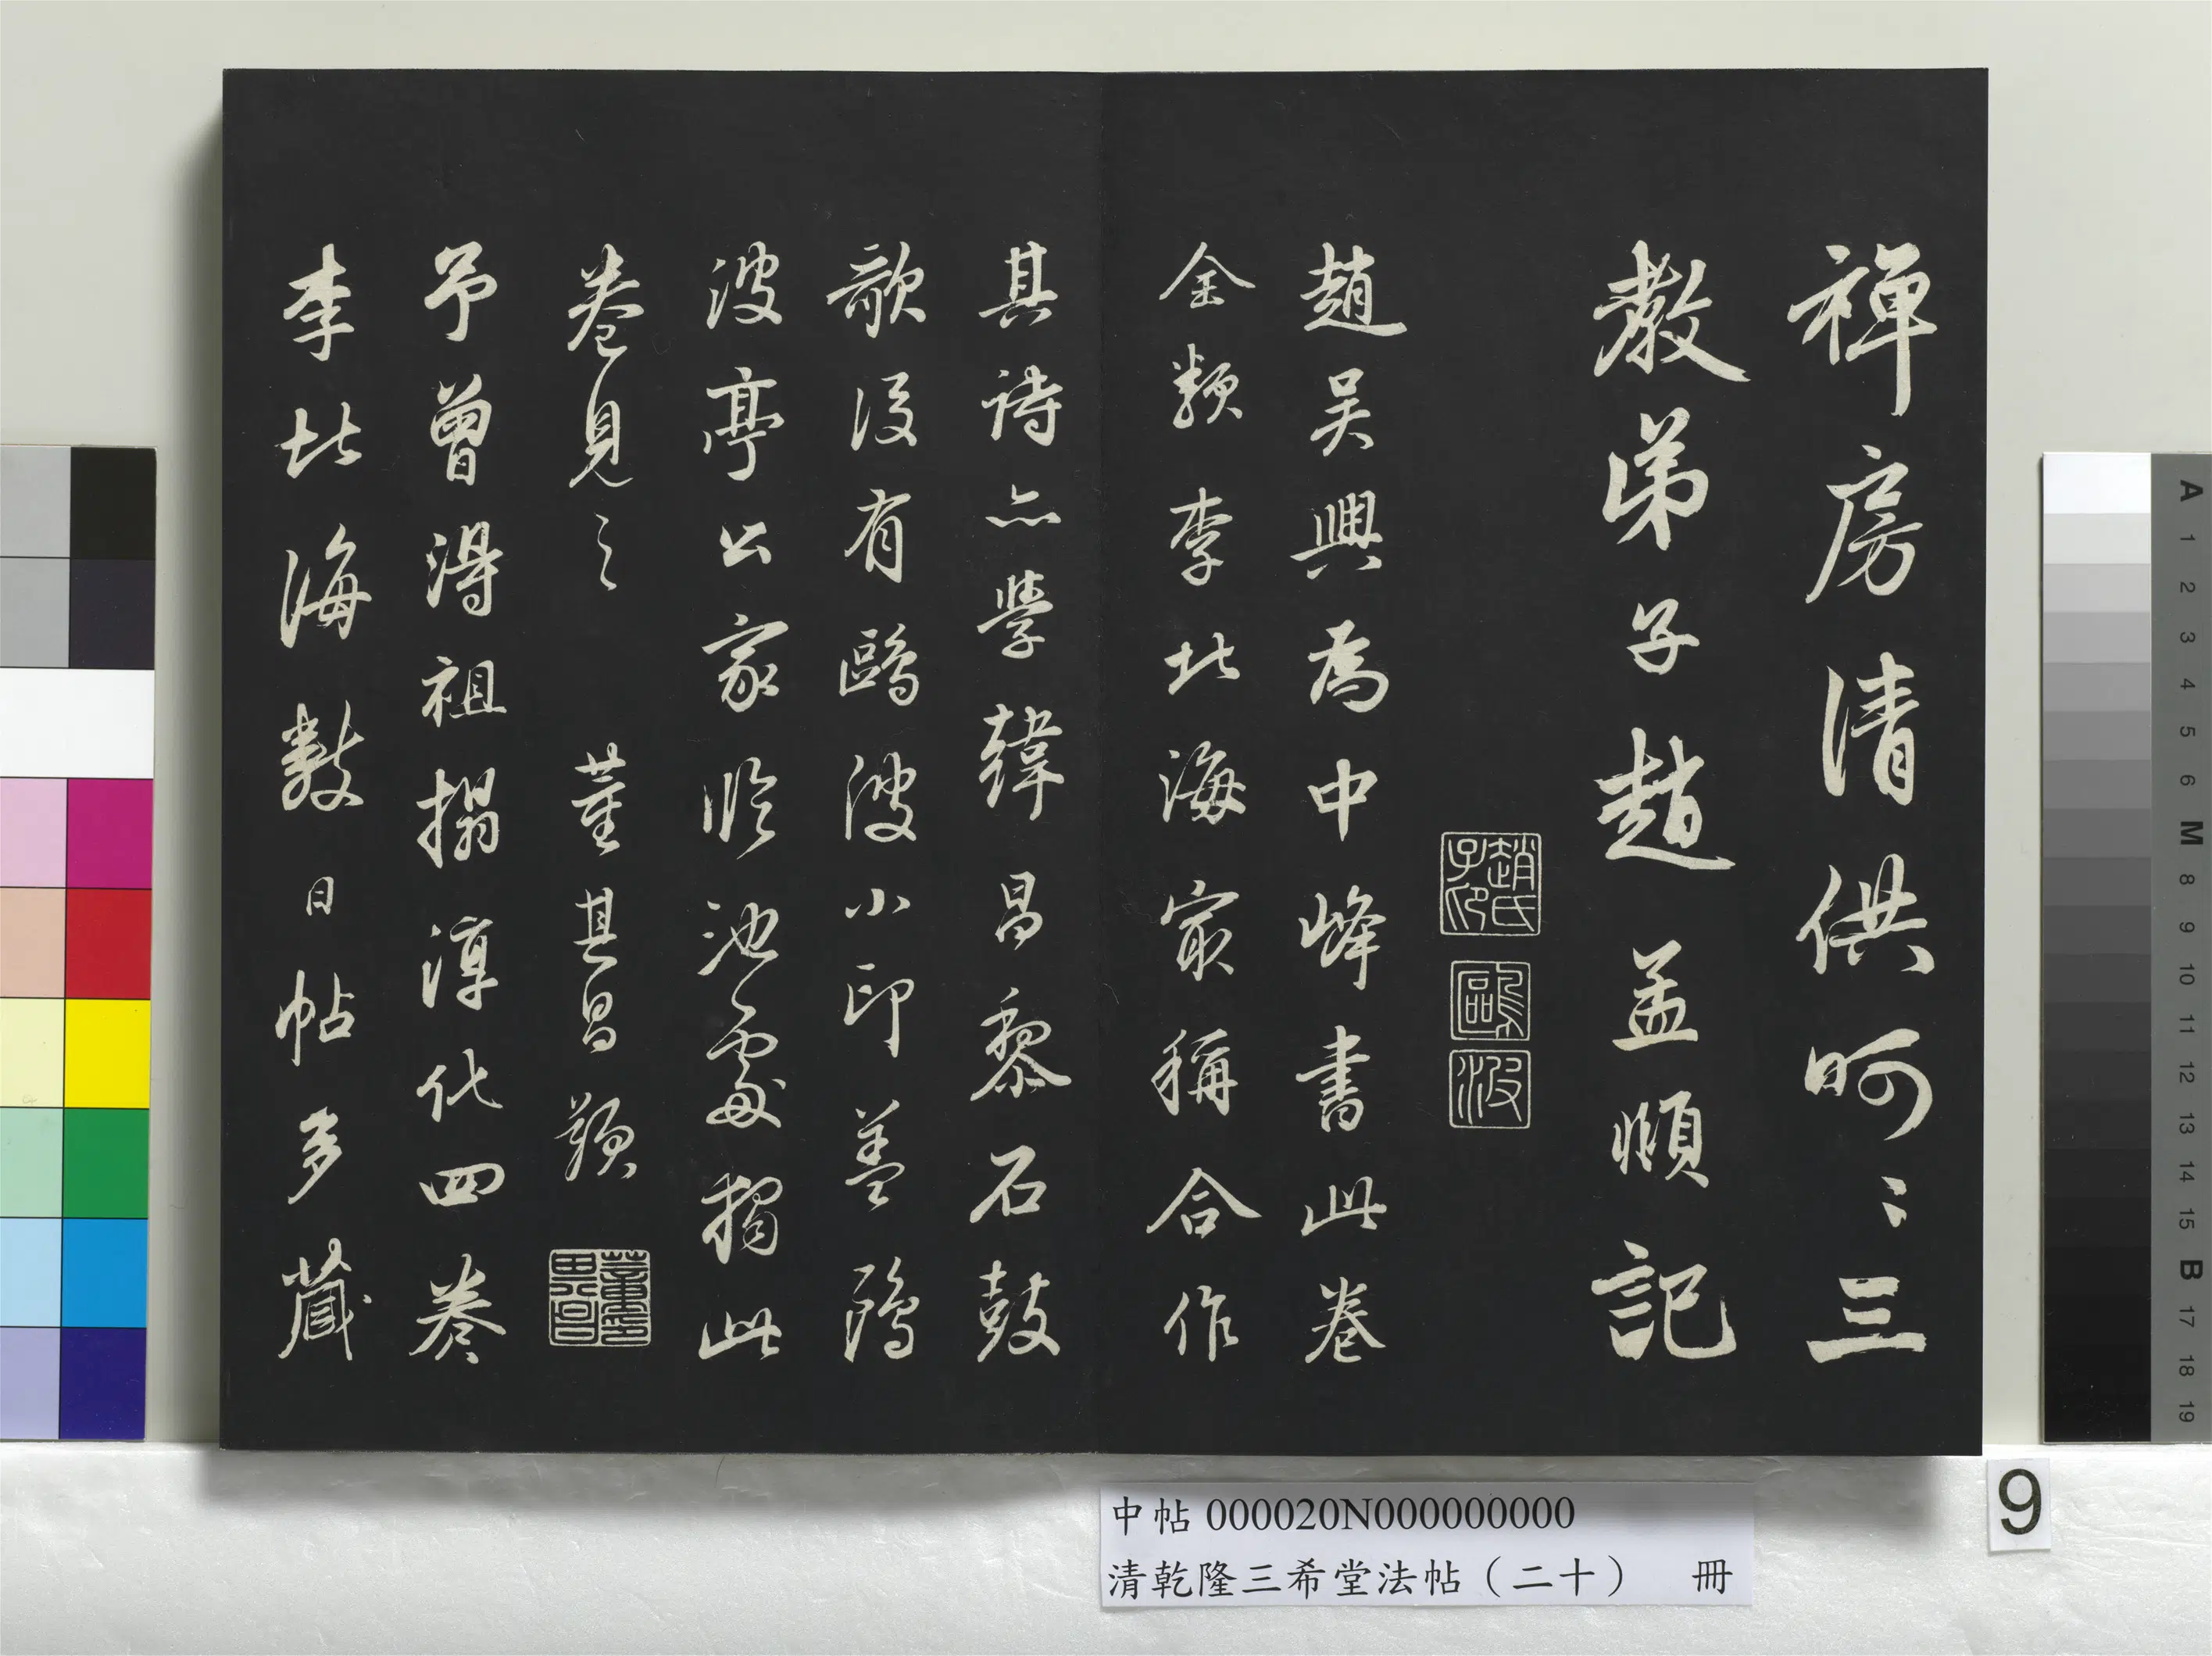 禅房清供呵〻三
教弟子趙孟頫記
趙氏子昂
鷗波
趙吳興為中峰書此卷
全類李北海最稱合作
其詩亦學韓昌黎石鼓
歌後有鷗波小印蓋鷗
波亭公家臨池處獨此
卷見之 董其昌題
予曾得祖搨淳化四卷
李北海數日帖多藏
中帖 000020N000000000
清乾隆三希堂法帖（二十） 冊
9
A 1 2 3 4 5 6 M 8 9 10 11 12 13 14 15 B 17 18 19